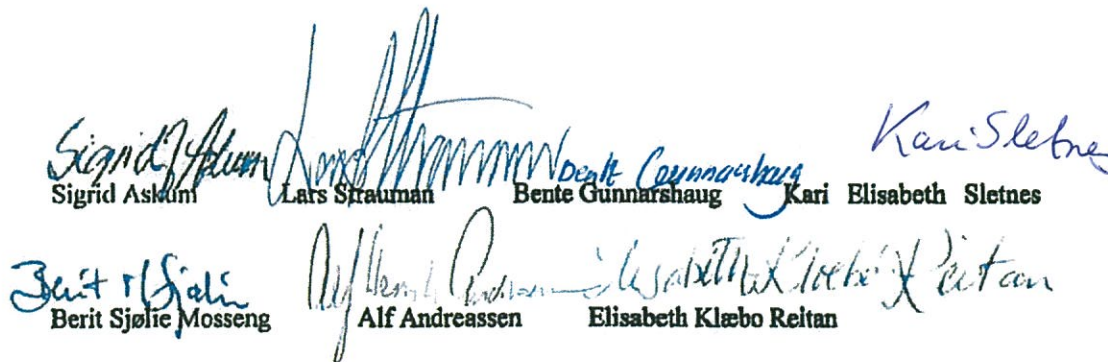 Sigrid Lars Bente Gunnarshaug Kari Sletnes
Sigrid Askum Lars Strauman Bente Gunnarshaug Kari Elisabeth Sletnes
Berit M Sjølie Alf Andreassen Elisabeth Klæbo Reitan
Berit Sjølie Mosseng Alf Andreassen Elisabeth Klæbo Reitan